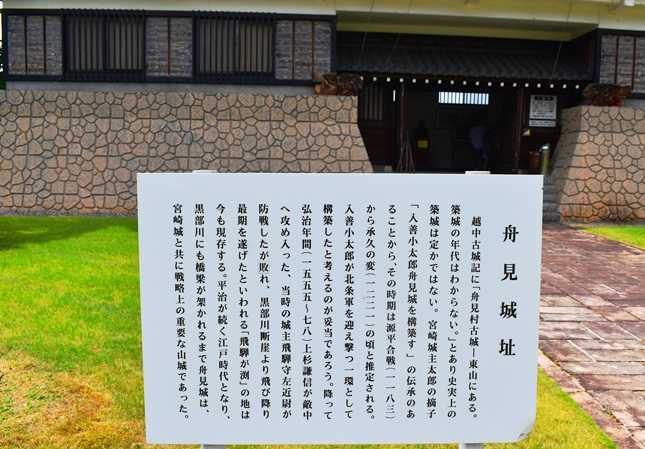 舟見城址
越中古城記に「舟見村古城ー東山にある。
築城の年代はわからない。」とあり史実上の
築城は定かではない。宮崎城主太郎の摘子
「入善小太郎舟見城を構築す」の伝承のあ
ることから、その時期は源平合戦(一一八三)
から承久の変(一二二一)の頃と推定される。
入善小太郎が北条軍を迎え撃つ一環として
構築したと考えるのが妥当であろう。降って
弘治年間(一五五五~七八)上杉謙信が敵中
へ攻め入った、当時の城主飛騨守左近尉が
防戦したが敗れ、黒部川断崖より飛び降り
最期を遂げたといわれる「飛騨が渕」の地は
今も現存する。平治が続く江戸時代となり、
黒部川にも橋梁が架かれるまで舟見城は、
宮崎城と共に戦略上の重要な山城であった。